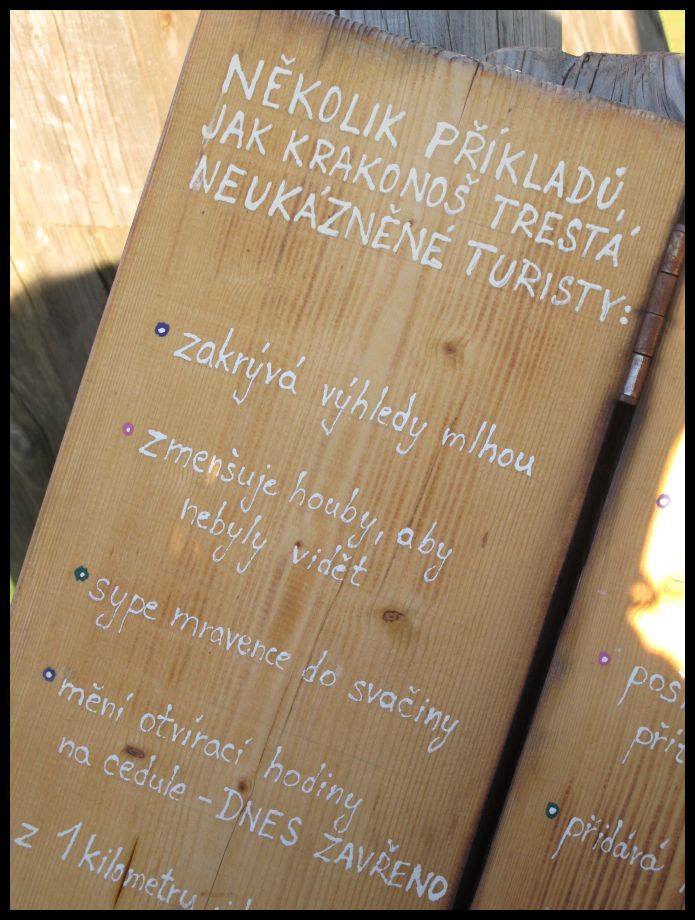 NĚKOLIK PŘÍKLADŮ,
JAK KRAKONOŠ TRESTÁ
NEUKÁZNĚNÉ TURISTY:
zakrývá výhledy mlhou
zmenšuje houby, aby
nebyly vidět
sype mravence do svačiny
mění otvírací hodiny
na cedule - DNES ZAVŘENO
z 1 kilometru
přidává